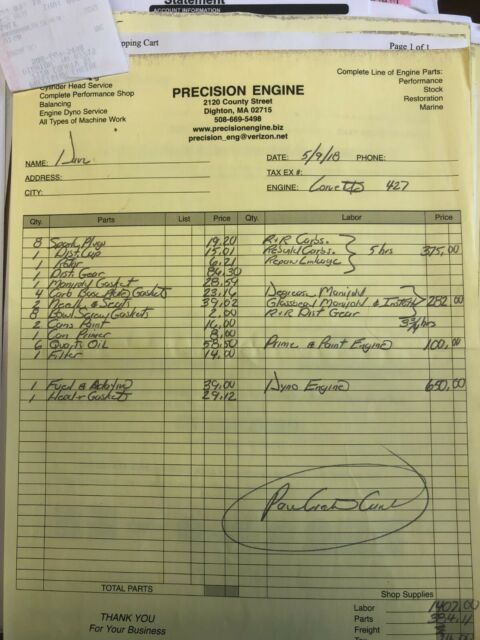 Statement
ACCOUNT INFORMATION
pping Cart
Page 1 of 1
Cylinder Head Service
Complete Performance Shop
Balancing
Engine Dyno Service
All Types of Machine Work
PRECISION ENGINE
2120 County Street
Dighton, MA 02715
508-669-5498
www.precisionengine.biz
precision_eng@verizon.net
Complete Line of Engine Parts:
Performance
Stock
Restoration
Marine
NAME:
DATE: 5/9/18 PHONE:
ADDRESS:
TAX EX #:
CITY:
ENGINE: Corvette 427
Qty. Parts List Price Labor Price
8 Spark Plugs 19.20 R+R Carbs.
1 Dist. Cap 15.01 Rebuild Carbs. 5 hrs 375.00
1 Rotor 6.21 Repair Linkage
1 Dist. Gear 84.30
1 Manifold Gasket 28.59
4 Carb Base Gaskets 23.16 Manifold
2 Needle & Seats 39.02 Glassbead Manifold & Install 282.00
8 Bowl Screw Gaskets 2.00 R+R Dist Gear
2 Cans Paint 16.00 3 3/4 hrs
1 Can Primer 8.00
6 Quarts Oil 58.50 Prime & Paint Engine 100.00
1 Filter 14.00
1 Fuel & 39.00 Dyno Engine 650.00
1 Header Gaskets 29.12
TOTAL PARTS
Shop Supplies
THANK YOU
For Your Business
Labor 1407.00
Parts
Freight